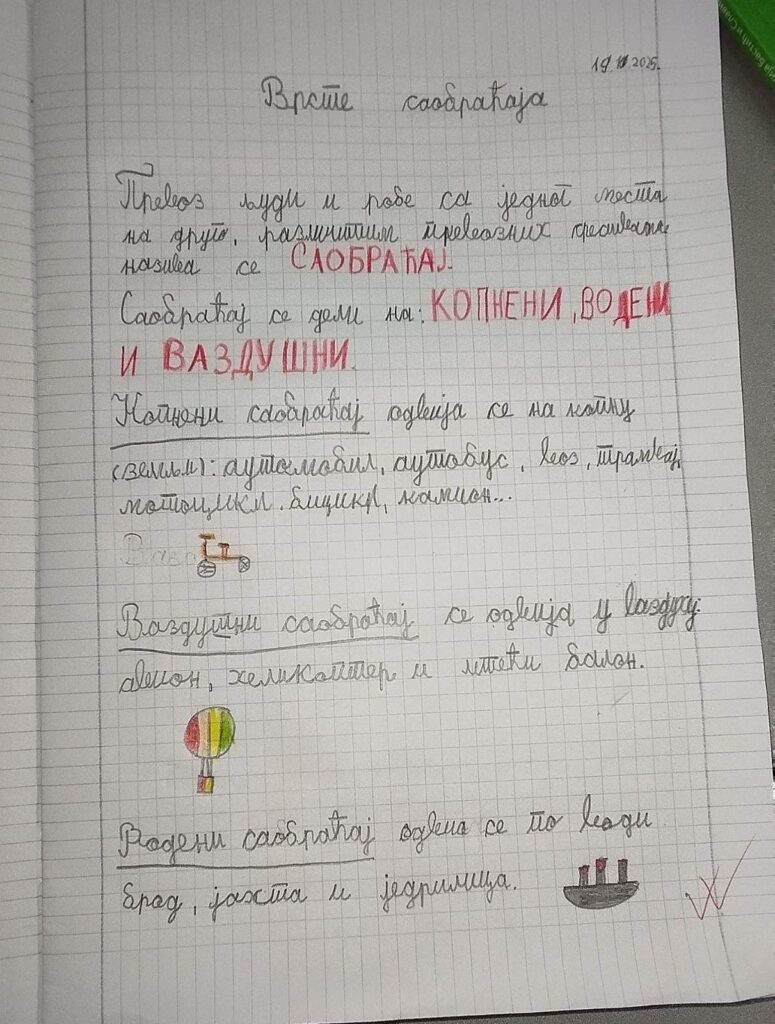 19. 2025.
Врсте саобраћаја
Превоз људи и робе са једног места
на друго, различитим превозних средствима
назива се САОБРАЋАЈ.
Саобраћај се дели на: КОПНЕНИ, ВОДЕНИ
И ВАЗДУШНИ.
Копнени саобраћај одвија се на копну
(земљи): аутомобил, аутобус, воз, трамвај,
мотоцикл. бицикл, камион...
Ваздушни саобраћај се одвија у ваздуху:
авион, хеликоптер и летећи балон.
Водени саобраћај одвиа се по води
брод, јахта и једрилица.